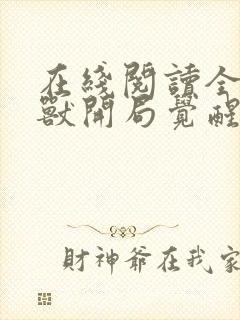 在綫閱讀全
獸開局覺醒
財神爺在我家